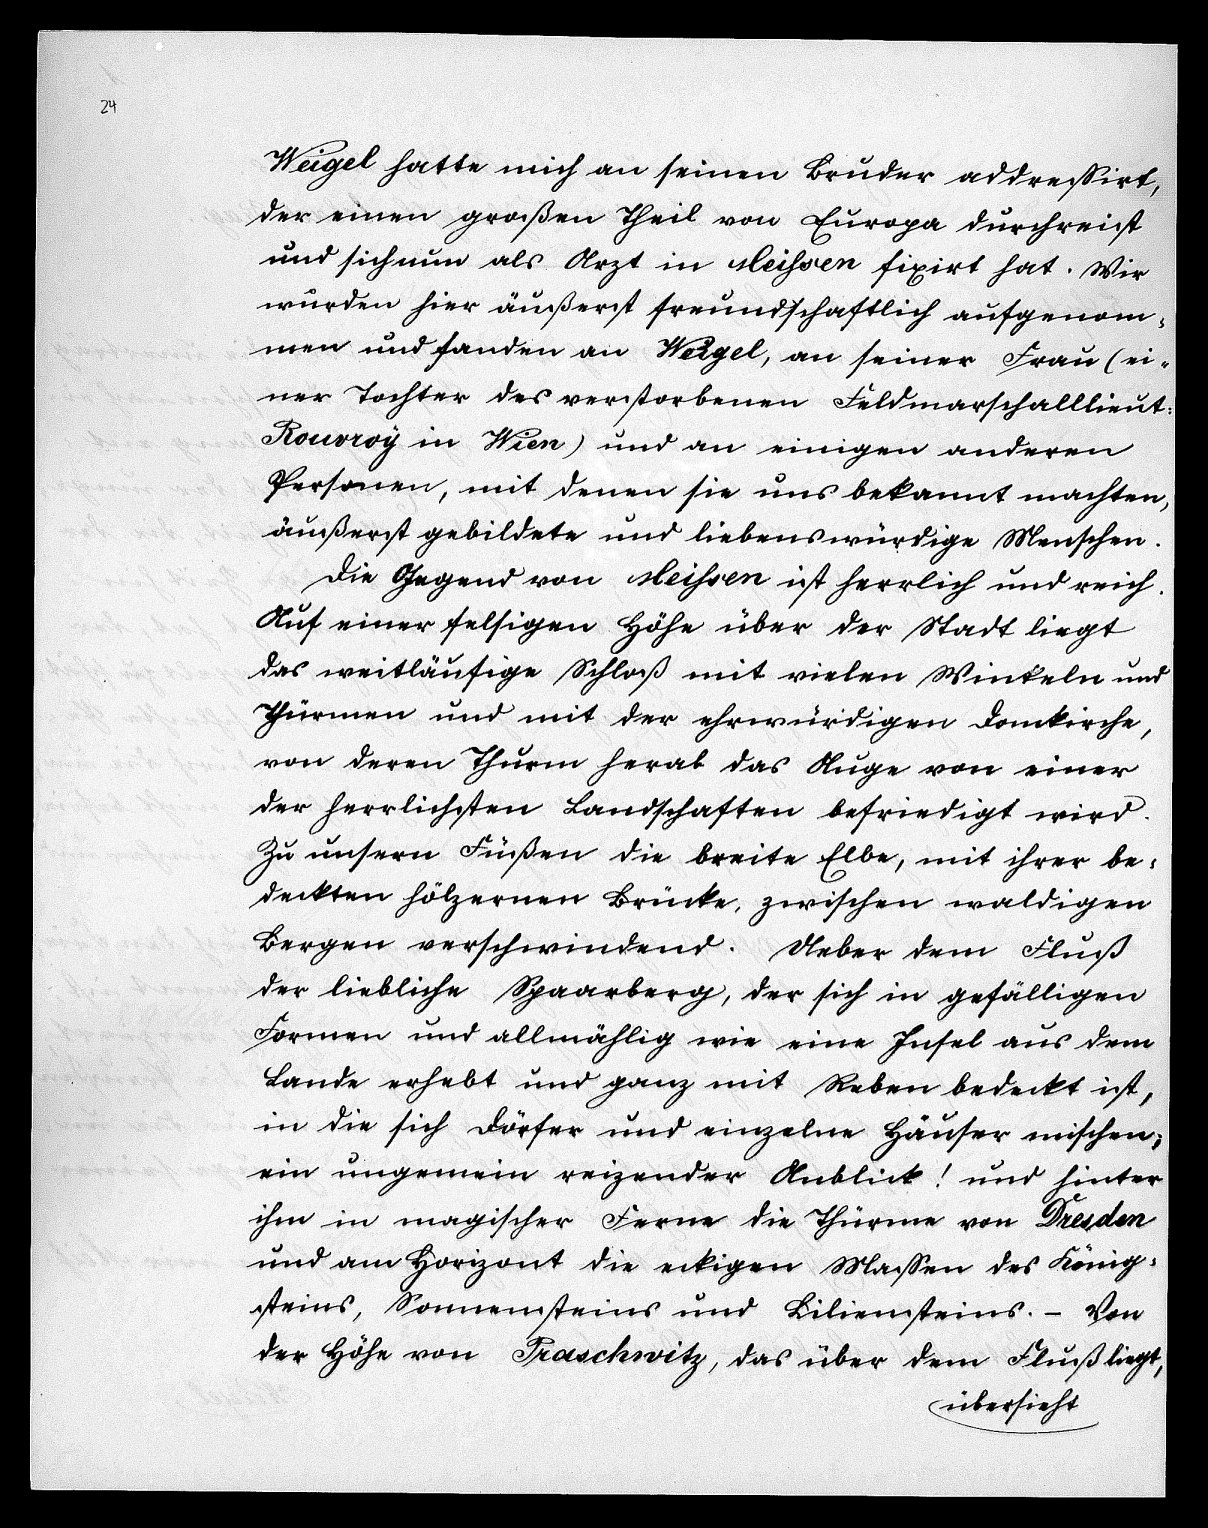 24
Weigel hatte mich an seinen Bruder addressirt,
der einen großen Theil von Europa durchreist
und sich nun als Arzt in Meissen fixirt hat. Wir
wurden hier äußerst freundschaftlich aufgenom=
men und fanden an Weigel, an seiner Frau (ei=
ner Tochter des verstorbenen Feldmarschalllieut:
Rouvroÿ in Wien) und an einigen anderen
Personen, mit denen sie uns bekannt machten,
äußerst gebildete und liebenswürdige Menschen.
Die Gegend von Meissen ist herrlich und reich.
Auf einer felsigen Höhe über der Stadt liegt
das weitläufige Schloß mit vielen Winkeln und
Thürmen und mit der ehrwürdigen Domkirche,
von deren Thurm herab das Auge von einer
der herrlichsten Landschaften befriedigt wird.
Zu unsern Füßen die breite Elbe, mit ihrer be=
deckten hölzernen Brücke, zwischen waldigen
Bergen verschwindend. Ueber dem Fluß
der liebliche Spaarberg, der sich in gefälligen
Formen und allmählig wie eine Insel aus dem
Lande erhebt und ganz mit Reben bedeckt ist,
in die sich Dörfer und einzelne Häuser mischen;
ein ungemein reizender Anblick! und hinter
ihm in magischer Ferne die Thürme von Dresden
und am Horizont die eckigen Massen des König=
steins, Sonnensteins und Liliensteins. – Von
der Höhe von Praschwitz, das über dem Fluß liegt,
übersieht